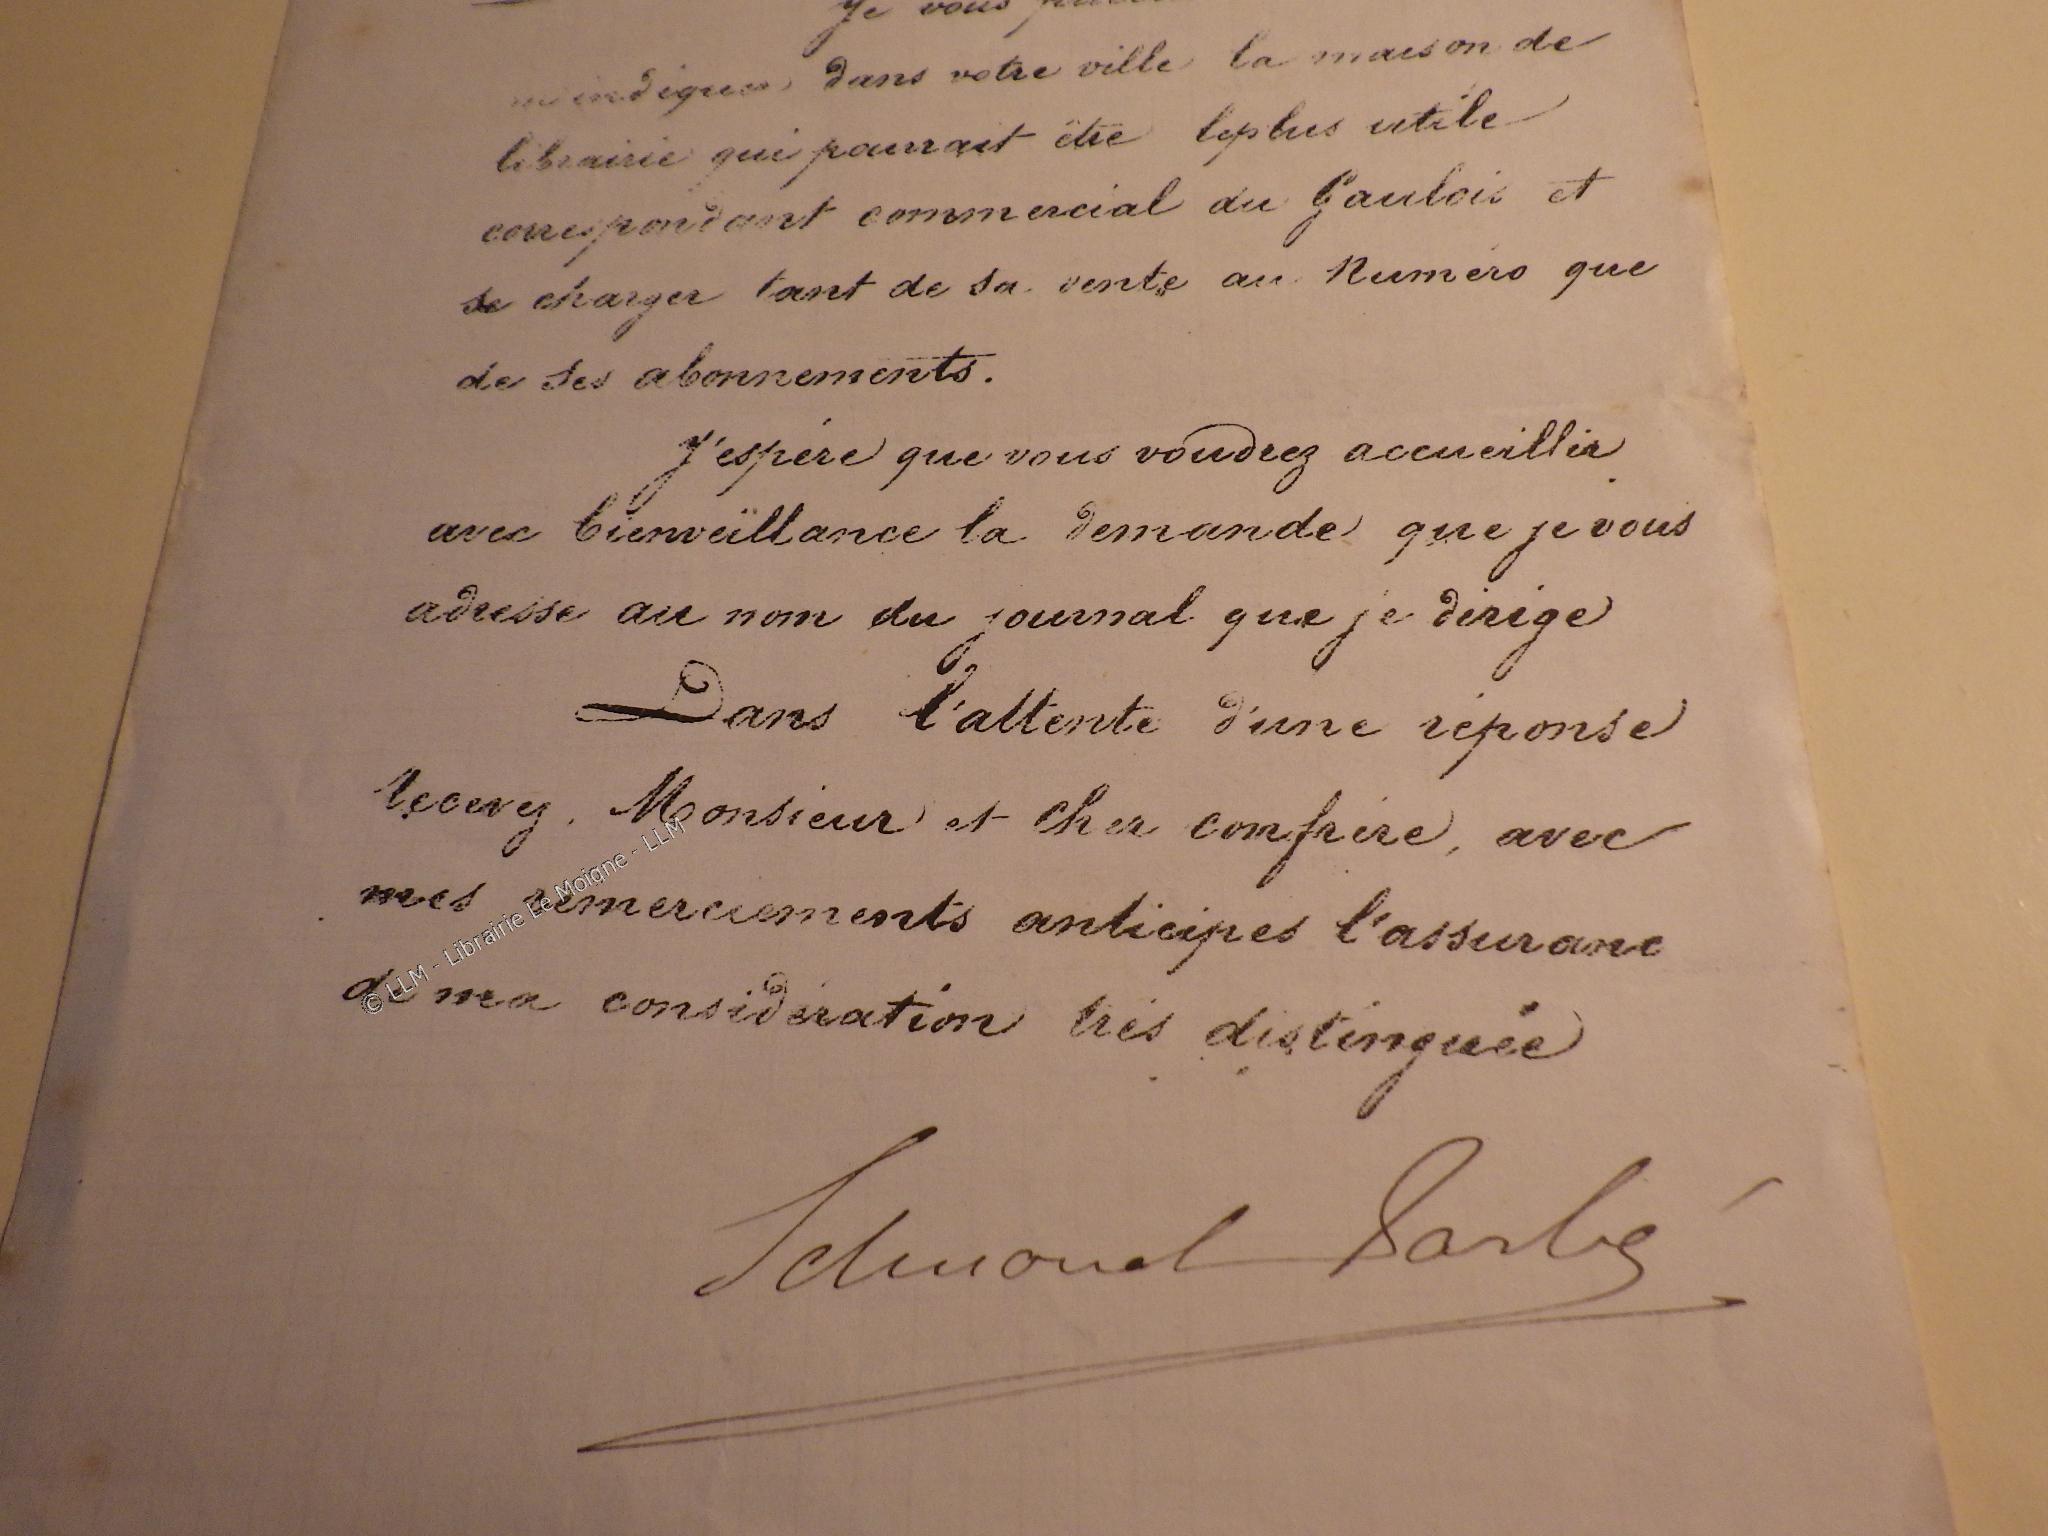 Je vous
m'indiquer dans votre ville la maison de
librairie qui pourrait être leplus utile
correspondant commercial du Gaulois et
se charger tant de sa vente au Numéro que
de ses abonnements.
J'espère que vous voudrez accueillir
avec bienveillance la demande que je vous
adresse au nom du journal que je dirige
Dans l'attente d'une réponse
recevez, Monsieur et cher confrère, avec
mes remerciements anticipés l'assuranc
de ma considération très distinguée
Edmond Tarbé
© LLM - Librairie Le Moigne - LLM